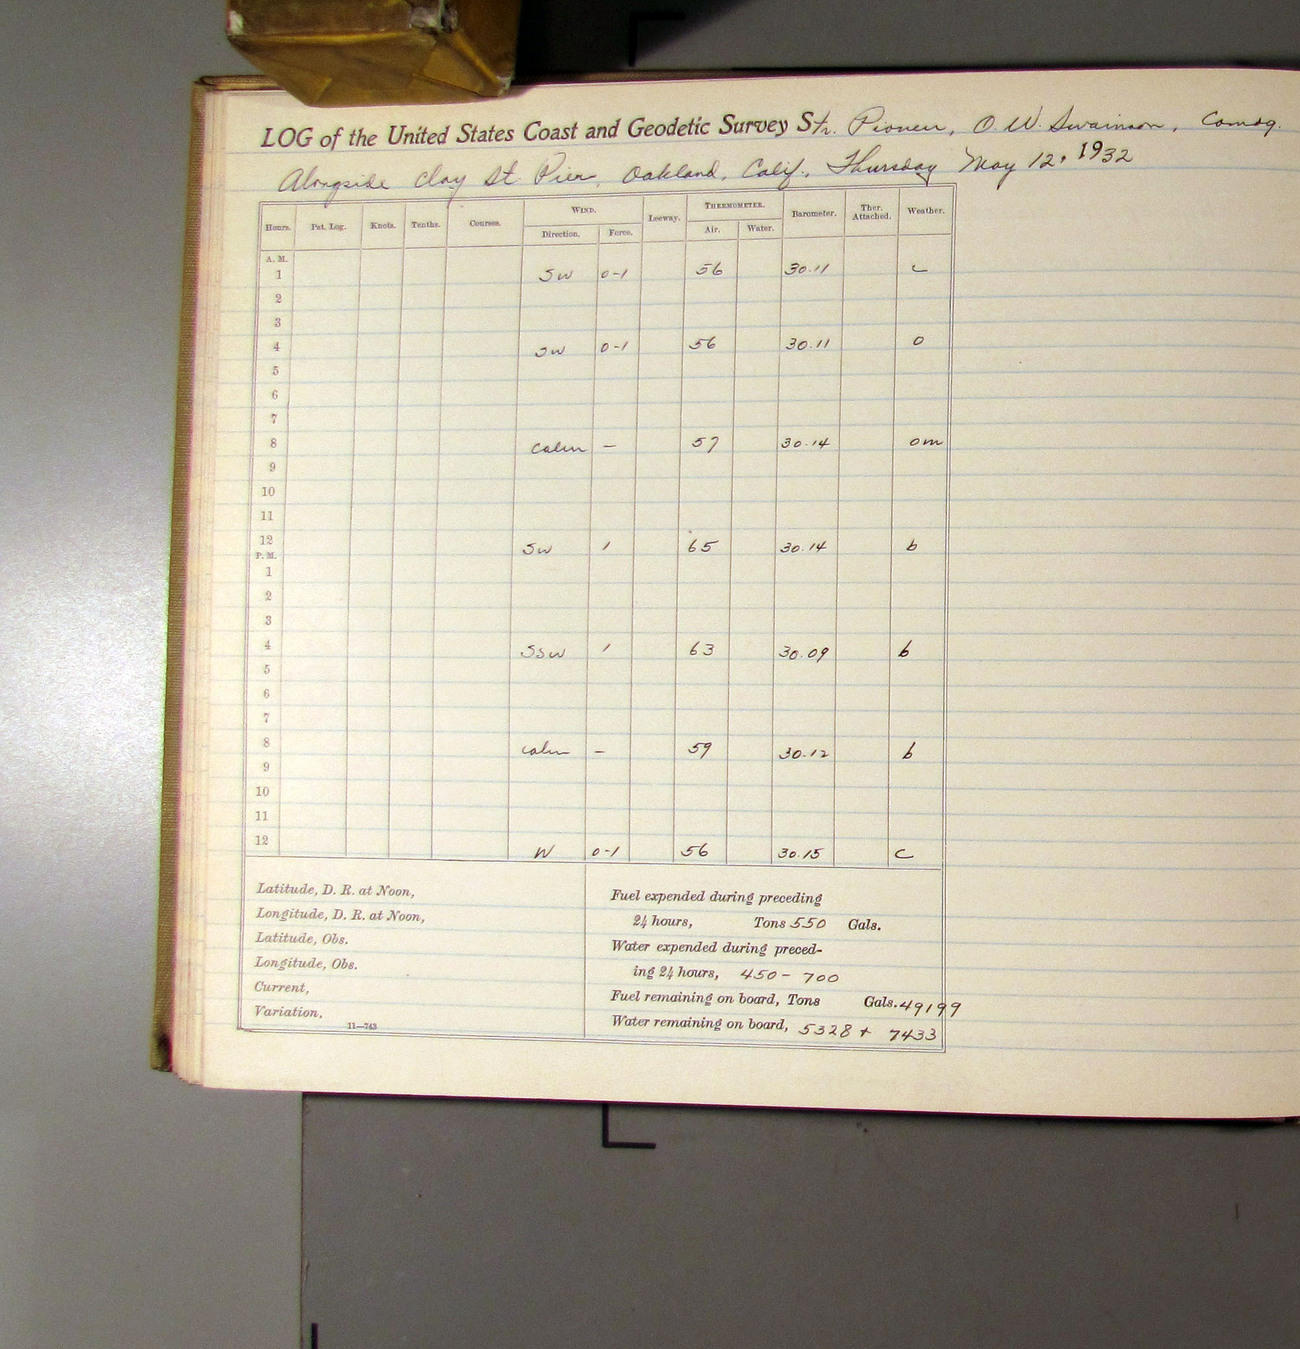 LOG of the United States Coast and Geodetic Survey Str. Pioneer, O. W. Swainson, Comdg.
Alongside Clay St. Pier, Oakland, Calif., Thursday May 12, 1932
Hours. Pat. Log. Knots. Tenths. Courses. WIND. Leeway. THERMOMETER. Barometer. Ther. Attached. Weather.
Direction. Force. Air. Water.
A. M.
1 SW 0-1 56 30.11 c
2
3
4 SW 0-1 56 30.11 o
5
6
7
8 calm – 57 30.14 om
9
10
11
12 SW 1 65 30.14 b
P. M.
1
2
3
4 SSW 1 63 30.09 b
5
6
7
8 calm – 59 30.12 b
9
10
11
12 W 0-1 56 30.15 c
Latitude, D. R. at Noon,
Longitude, D. R. at Noon,
Latitude, Obs.
Longitude, Obs.
Current,
Variation,
11—743
Fuel expended during preceding
24 hours, Tons 550 Gals.
Water expended during preced-
ing 24 hours, 450 - 700
Fuel remaining on board, Tons Gals. 49199
Water remaining on board, 5328 + 7433